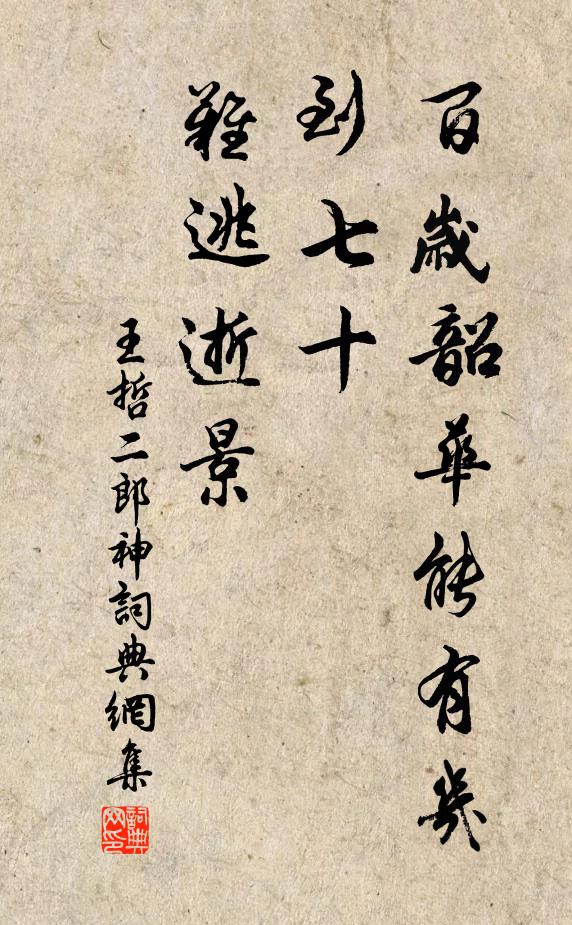 百歲韶華能有幾
到七十
難逃逝景
王哲二郎神詞典網集
詞典
网印